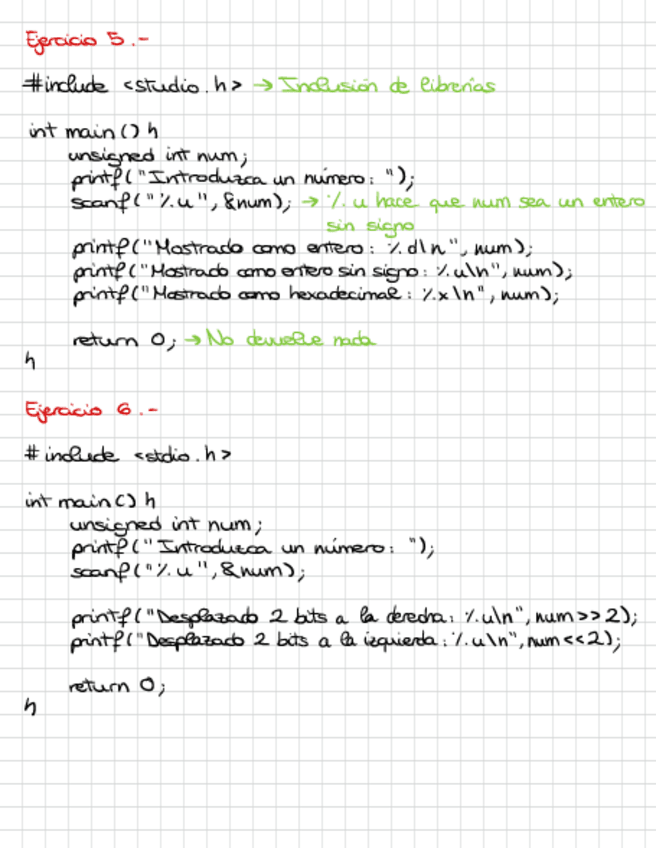 Ejercicio 5.-
#include <studio.h> → Inclusión de librerías
int main () {
unsigned int num;
printf("Introduzca un número: ");
scanf("%u", &num); → %u hace que num sea un entero
sin signo
printf("Mostrado como entero: %d\n", num);
printf("Mostrado como entero sin signo: %u\n", num);
printf("Mostrado como hexadecimal: %x\n", num);
return 0; → No devuelve nada
}
Ejercicio 6.-
#include <stdio.h>
int main () {
unsigned int num;
printf("Introduzca un número: ");
scanf("%u", &num);
printf("Desplazado 2 bits a la derecha: %u\n", num>>2);
printf("Desplazado 2 bits a la izquierda: %u\n", num<<2);
return 0;
}